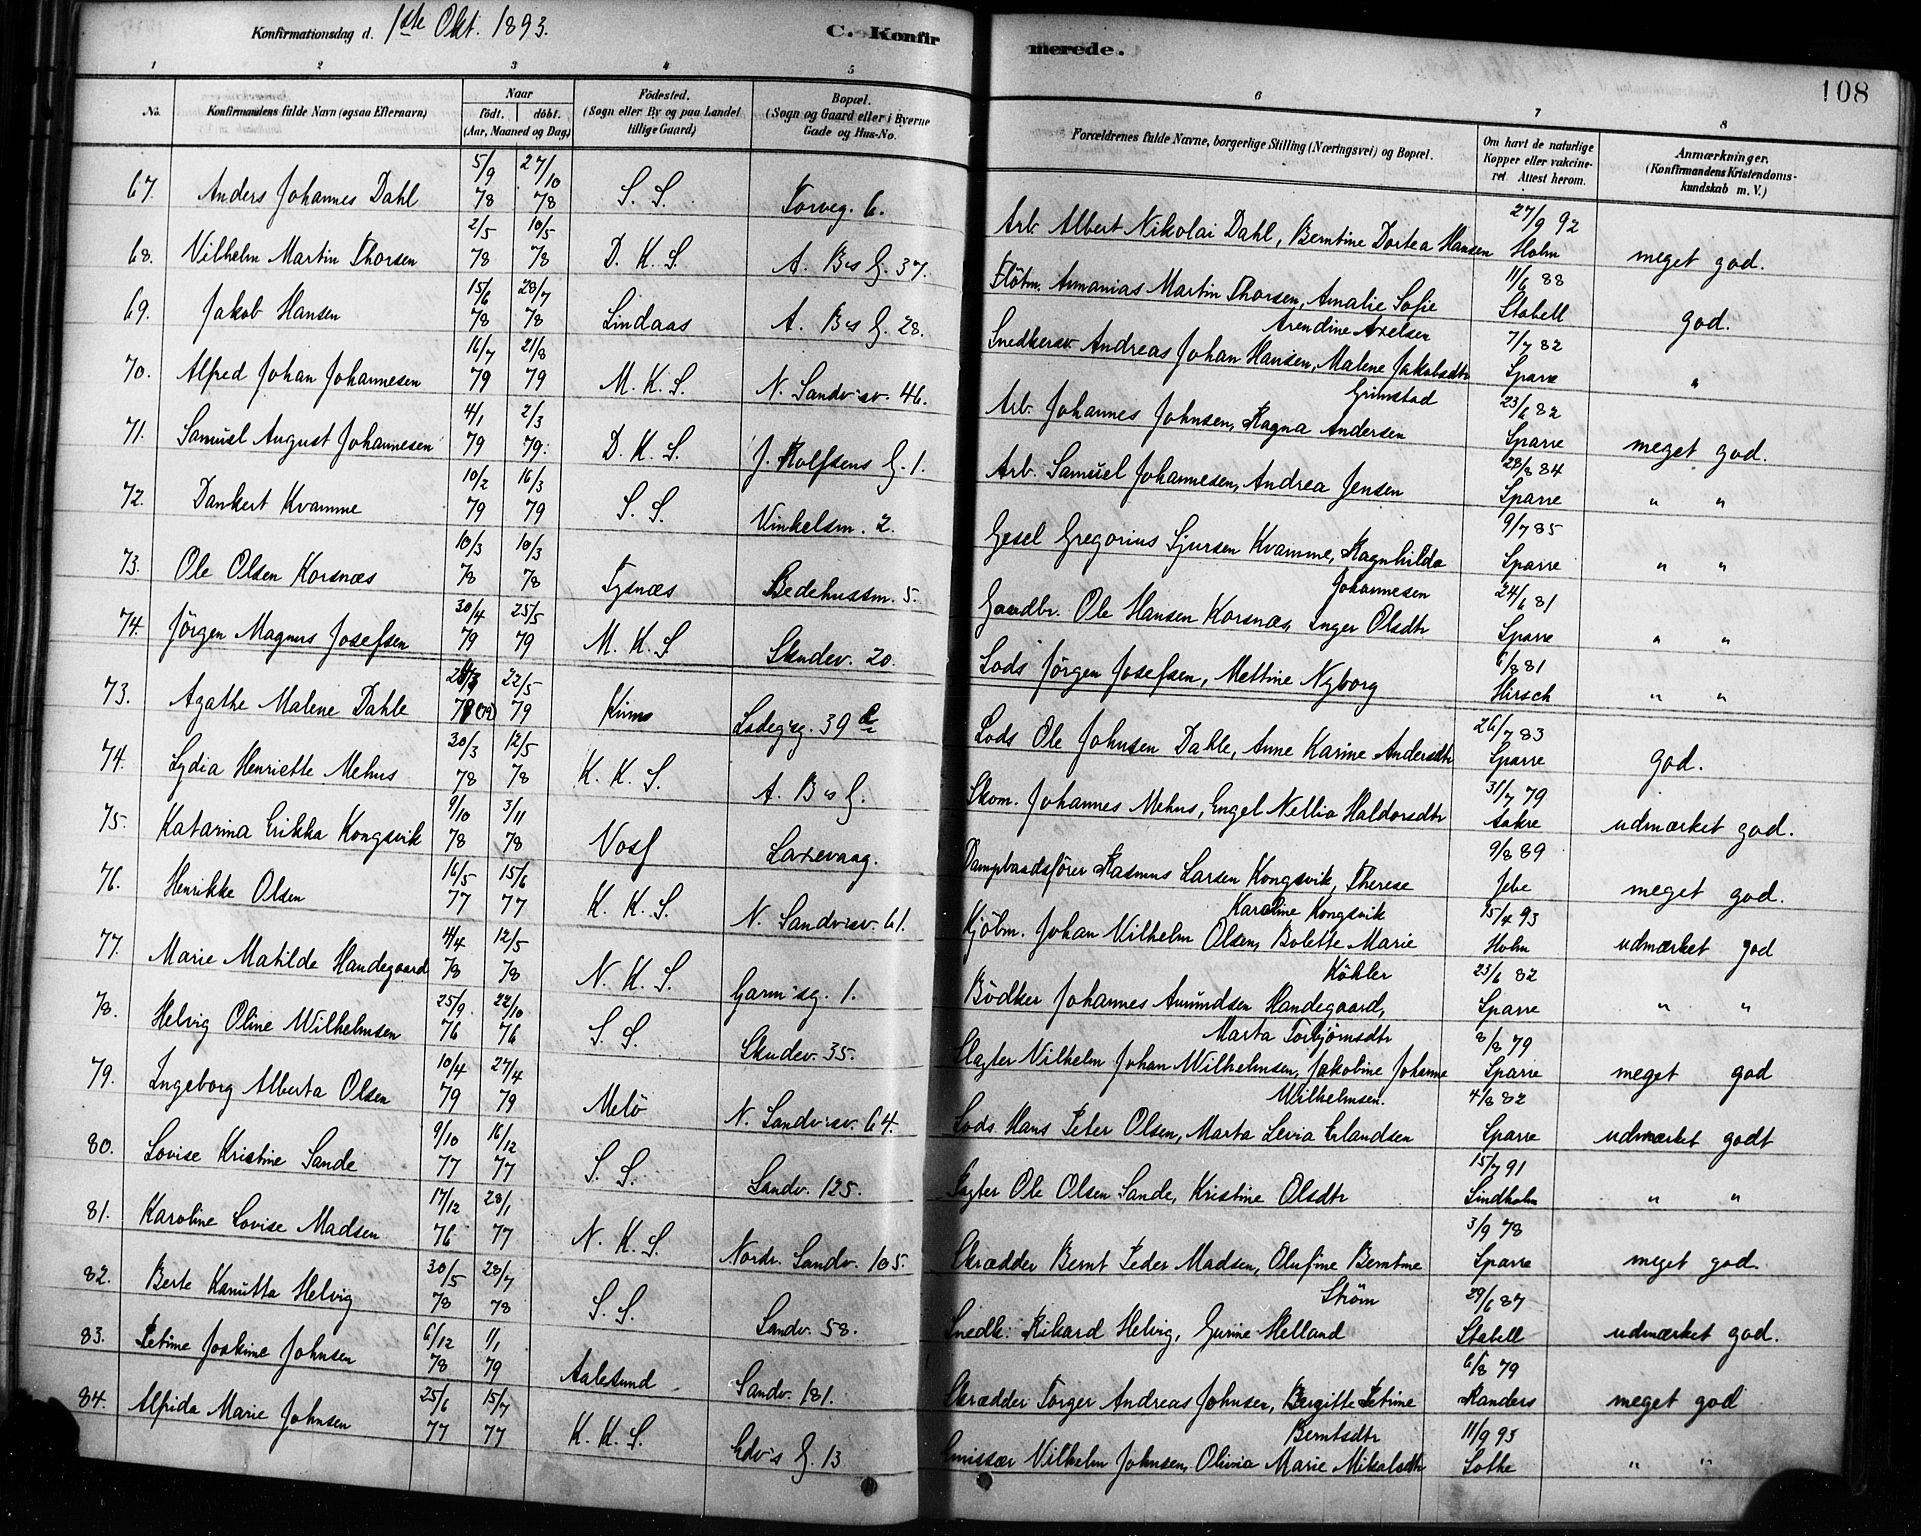 Konfirmationsdag d. 1ste Okt. 1893.
C. Konfirmerede.
108
1 2 3 4 5 6 7 8
No. Konfirmandens fulde Navn (ogsaa Efternavn) Naar født. døbt. (Aar, Maaned og Dag) Fødested. (Sogn eller By og paa Landet tillige Gaard) Bopæl. (Sogn og Gaard eller i Byerne Gade og Hus-No. Forældrenes fulde Navne, borgerlige Stilling (Næringsvei) og Bopæl. Om havt de naturlige Kopper eller vakcineret. Attest herom. Anmærkninger. (Konfirmandens Kristendomskundskab m. V.)
67. Anders Johannes Dahl 5/9 78 27/10 78 S. S. Torveg. 6. Arb. Albert Nikolai Dahl, Berntine Dortea Hansen 27/9 92 Holm meget god.
68. Vilhelm Martin Thorsen 2/5 78 10/5 78 D. K. S. A. B's G. 37. Flötm. Annanias Martin Thorsen, Amalie Sofie Arendine Axelsen 11/6 88 Stabell god.
69. Jakob Hansen 15/6 78 28/7 78 Lindaas A. B's G. 28. Snedkersv. Andreas Johan Hansen, Malene Jakobsdtr Grimstad 7/7 82 Sparre "
70. Alfred Johan Johannesen 16/7 79 21/8 79 M. K. S. N. Sandv'sv. 46. Arb. Johannes Johnsen, Ragna Andersen 23/6 82 Sparre meget god.
71. Samuel August Johannesen 4/1 79 2/3 79. D. K. S. J. Rolfsens G. 1. Arb. Samuel Johannesen, Andrea Jensen 28/8 84 Sparre " "
72. Dankert Kvamme 10/2 79 16/3 79 S. S. Vinkelsm. 2. Gesel Gregorius Sjursen Kvamme, Ragnhilda Johannesen 9/7 85 Sparre " "
73. Ole Olsen Korsnæs 10/3 78 10/3 78 Tysnæs Bedehussm. 5. Gaardbr. Ole Hansen Korsnæs, Inger Olsdtr 24/6 81 Sparre " "
74. Jørgen Magnus Josefsen 30/4 79 25/5 79 M. K. S Skudev. 20. Lods Jørgen Josefsen, Mettine Nyborg 6/8 81 Hirsch " "
73. Agathe Malene Dahle 22/5 79 Kinn Ladeg'sg. 39 Lods Ole Johnsen Dahle, Anne Karine Andersdtr 26/7 83 Sparre god.
74. Lydia Henriette Mehus 30/3 78 12/5 78 K. K. S. A. B's G. Skom. Johannes Mehus, Engel Nellia Haldorsdtr 31/7 79 Aakre udmærket god.
75. Katarina Erikka Kongsvik 9/10 78 3/11 78 Voss Laxevaag. Dampbaadsfører Rasmus Larsen Kongsvik, Therese Karoline Kongsvik 9/8 89 Jebe meget god.
76. Henrikke Olsen 16/5 77 15/6 77 K. K. S. N. Sandv'sv. 61. Kjøbm. Johan Vilhelm Olsen, Bolette Marie Köhler 15/4 93 Holm udmærket god
77. Marie Matilde Handegaard 4/4 78 12/5 78 N. K. S. Garm'sg. 1. Bödker Johannes Amundsen Handegaard, Marta Torbjörnsdtr 23/6 82 Sparre " "
78. Helvig Oline Wilhelmsen 25/9 76 22/10 76 S. S. Skudev. 35. Slagter Vilhelm Johan Wilhelmsen, Jakobine Johanne Wilhelmsen. 8/8 79 Sparre meget god
79. Ingeborg Alberta Olsen 10/4 79 27/4 79 Melö N. Sandv'sv. 64. Lods Hans Peter Olsen, Marta Levia Erlandsen 4/8 82 Sparre udmærket godt
80. Lovise Kristine Sande 9/10 77 16/12 77 S. S. Sandv. 125. Ole Olsen Sande, Kristine Olsdtr 15/7 91 Lindholm " "
81. Karoline Lovise Madsen 17/12 76 28/1 77 N. K. S Nordr. Sandv. 105. Skrædder Bernt Peder Madsen, Olufine Berntine Strøm 3/9 78 Sparre meget god.
82. Berte Kanutta Helvig 30/5 78 28/7 78 S. S. Sandv. 58. Snedk. Rikard Helvig, Gurine Helland 29/6 87 Stabell udmærket god.
83. Petrine Joakime Johnsen 6/12 78 1/1 79 Aalesund Sandv. 181. Skrædder Torger Andreas Johnsen, Bergitte Petrine Berntsdtr 6/8 79 Randers meget god
84. Alfrida Marie Johnsen 25/6 77 15/7 77 K. K. S. Edv's G. 13 Emissær Vilhelm Johnsen, Olivia Marie Mikalsdtr 11/9 93 Lothe " "